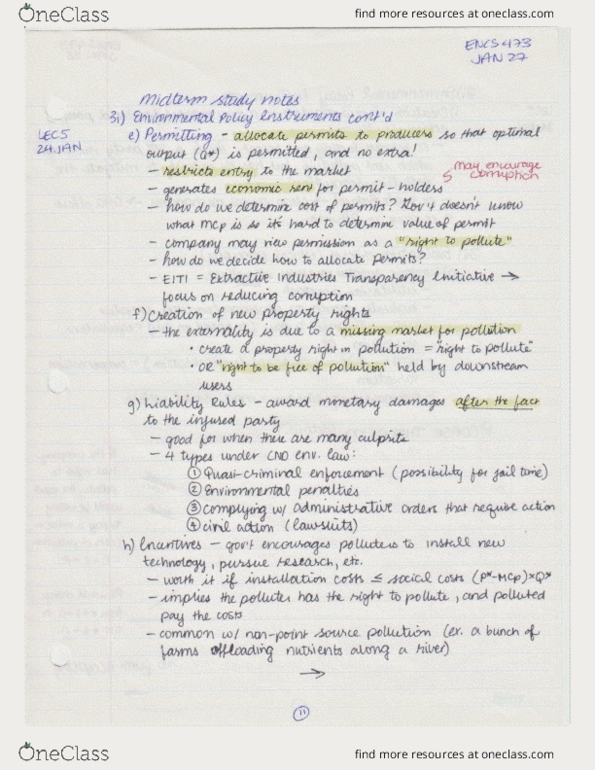 OneClass
find more resources at oneclass.com
ENCS 473
JAN 27
midterm study notes
3i) Environmental Policy Instruments cont'd
LEC 5
24 JAN
e) Permitting - allocate permits to producers so that optimal
output (Q*) is permitted, and no extra!
- restricts entry to the market
may encourage
corruption
- generates economic rent for permit-holders
- how do we determine cost of permits? Gov't doesn't know
what MCp is so it's hard to determine value of permit
- company may view permission as a "right to pollute"
- how do we decide how to allocate permits?
- EITI = Extractive Industries Transparency Initiative →
focus on reducing corruption
f) Creation of new property rights
- the externality is due to a missing market for pollution
• create a property right in pollution = "right to pollute"
• OR "right to be free of pollution" held by downstream
users
g) Liability Rules - award monetary damages after the fact
to the injured party
- good for when there are many culprits
- 4 types under CND env. law:
① Quasi-criminal enforcement (possibility for jail time)
② Environmental penalties
③ complying w/ administrative orders that require action
④ civil action (lawsuits)
h) Incentives - gov't encourages polluters to install new
technology, pursue research, etc.
- worth it if installation costs ≤ social costs (P*-MCp)*Q*
- implies the polluter has the right to pollute, and polluted
pay the costs
- common w/ non-point source pollution (ex. a bunch of
farms offloading nutrients along a river)
→
11
OneClass
find more resources at oneclass.com